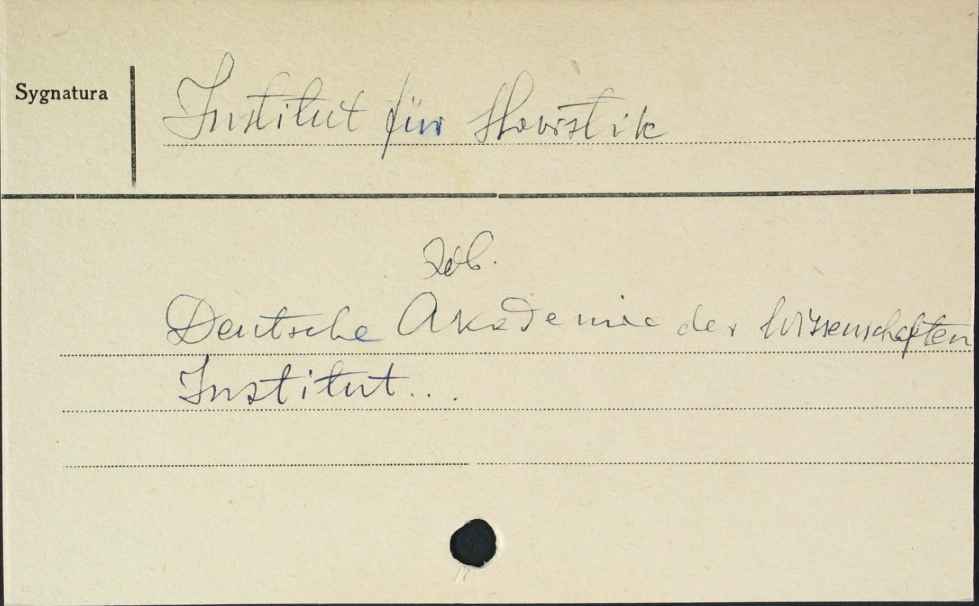 Sygnatura
Institut für Slavistik
zob.
Deutsche Akademie der Wissenschaften
Institut...